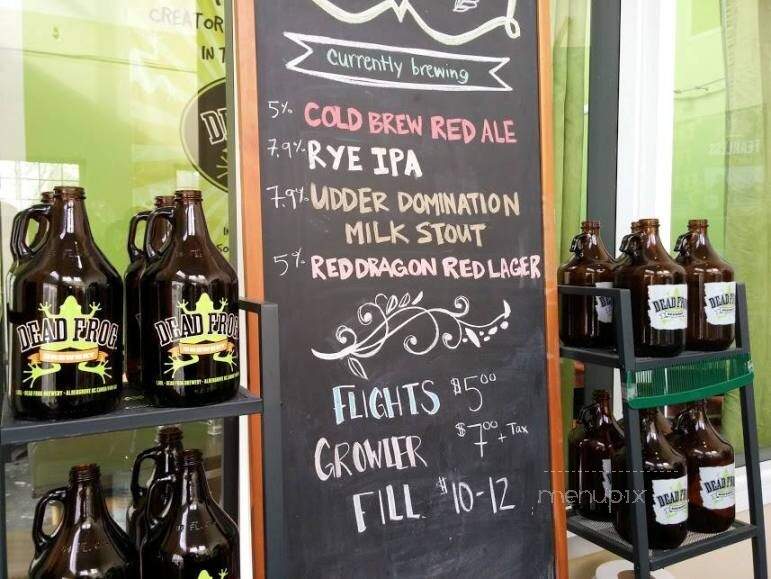 CREATOR
IN T
currently brewing
5% COLD BREW RED ALE
7.9% RYE IPA
7.9% UDDER DOMINATION
MILK STOUT
5% RED DRAGON RED LAGER
FLIGHTS $5.00
GROWLER $7.00 + Tax
FILL $10-12
DEAD FROG
DEAD FROG
DEAD
DEAD
DEAD
DEAD
menupix